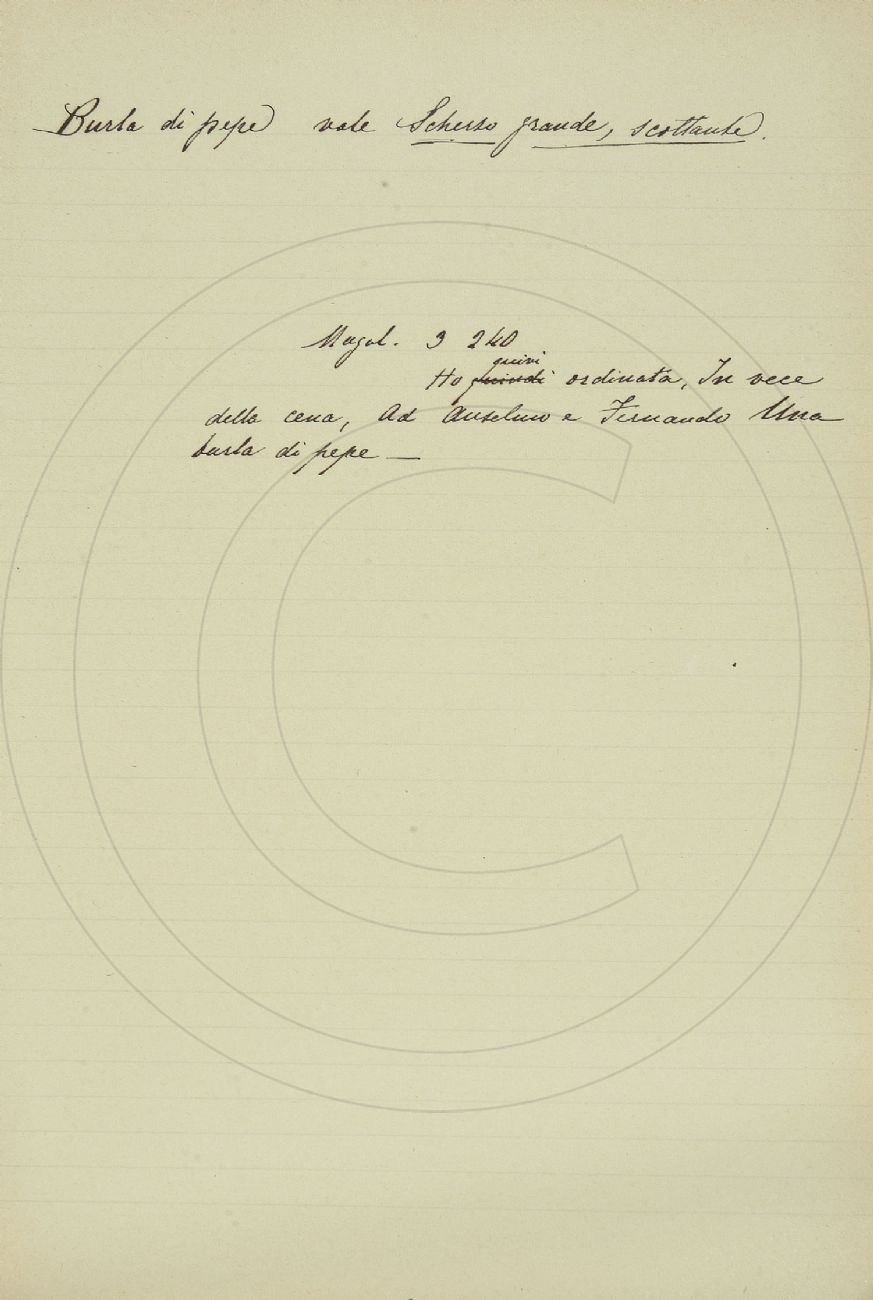 Burla di pepe vale Scherzo grande, scottante.
Magal. 9 240
quivi
Ho quindi ordinata, In vece
della cena, Ad Anselmo e Fernando Una
burla di pepe —